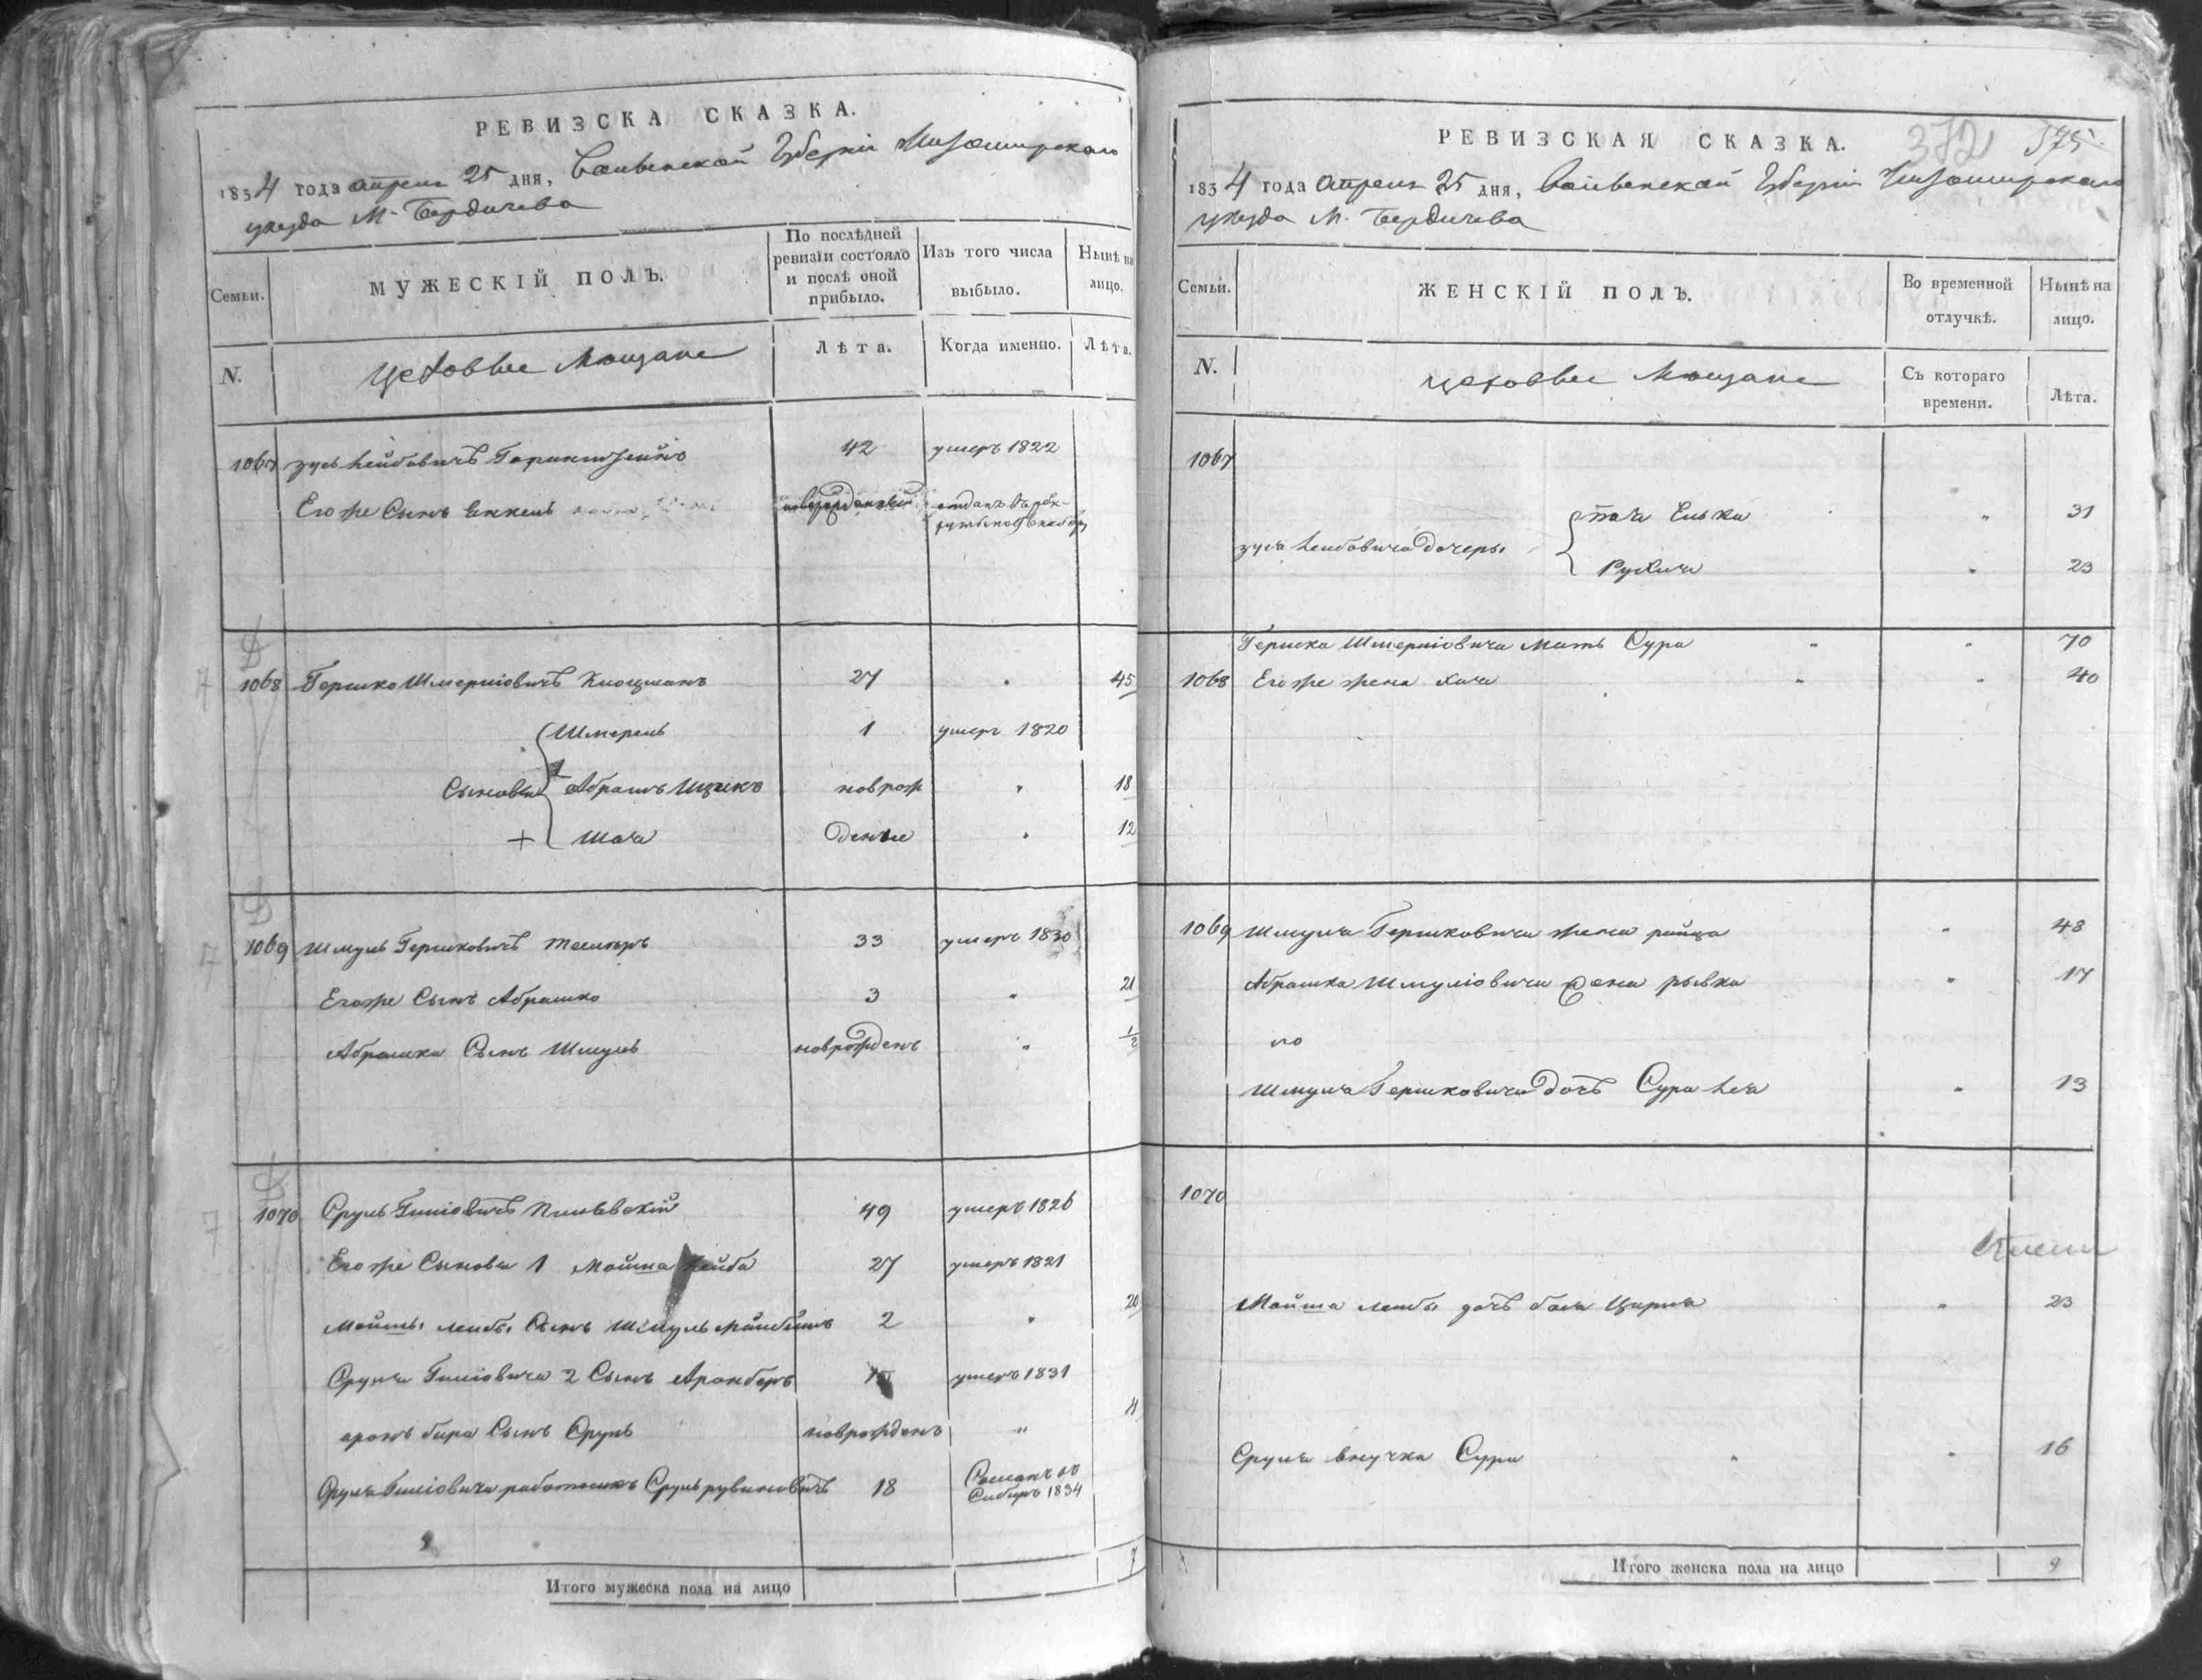 РЕВИЗСКА СКАЗКА.
1834 года апреля 25 дня, Волынской Губерніи Житомирскаго
уезда М. Бердичева
Семьи.
МУЖЕСКІЙ ПОЛЪ.
По послѣдней ревизіи состояло и послѣ оной прибыло.
Изъ того числа выбыло.
Нынѣ на лицо.
N.
Цеховые Мещане
Лѣта.
Когда именно.
Лѣта.
1067 Зусь Лейбовичъ 42 умеръ 1822
Его же Сынъ отданъ
1068 Гершко Шмеріовичъ Клоцманъ 27 45
Шмерель 1 умеръ 1820
Сыновья Абрамъ Ицикъ новрож 18
Шая денные 12
1069 Шмуль Гершковичъ 33 умеръ 1830
Его же Сынъ Абрашко 3 21
Абрашки Сынъ Шмуль новрожденъ 1/2
1070 Сруль 49 умеръ 1826
Его же Сыновья 1 Мошка Лейба 27 умеръ 1821
Мошки Лейбы Сынъ Шмуль 2 20
Сруля 2 Сынъ Аронберъ умеръ 1831
аронъ бера Сынъ Сруль новрожденъ 4
Сруля работникъ Сруль рувиновичъ 18 Сосланъ въ
Сибирь 1834
Итого мужеска пола на лицо 7
РЕВИЗСКАЯ СКАЗКА.
372 375
1834 года апреля 25 дня, Волынской Губерніи Житомирскаго
уезда М. Бердичева
Семьи.
ЖЕНСКІЙ ПОЛЪ.
Во временной отлучкѣ.
Нынѣ на лицо.
N.
цеховые Мещане
Съ котораго времени.
Лѣта.
1067
Елька 31
зуся Лейбовича дочеры
Рухля 23
Гершка Шмеріовича Мать Сура 70
1068 Его же жена Хая 40
1069 Шмуля Гершковича жена райца 48
Абрашка Шмуліовича жена рывка 17
по
Шмуля Гершковича дочъ Сура Лея 13
1070
Мошка Лейбы дочъ бася Цирля 23
Сруля внучка Сура 16
Итого женска пола на лицо 9